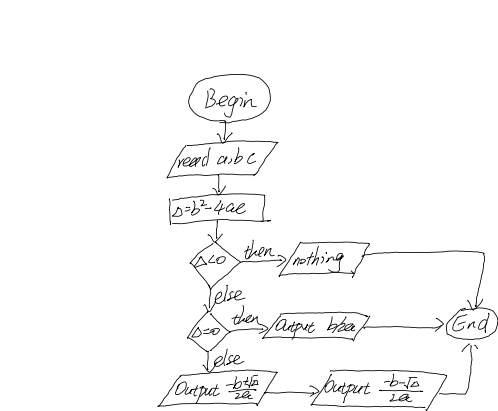 Begin
read a.b.c
Δ=b²-4ac
Δ<0
then
nothing
else
Δ=0
then
Output b/2a
End
else
Output -b+√Δ/2a
Output -b-√Δ/2a